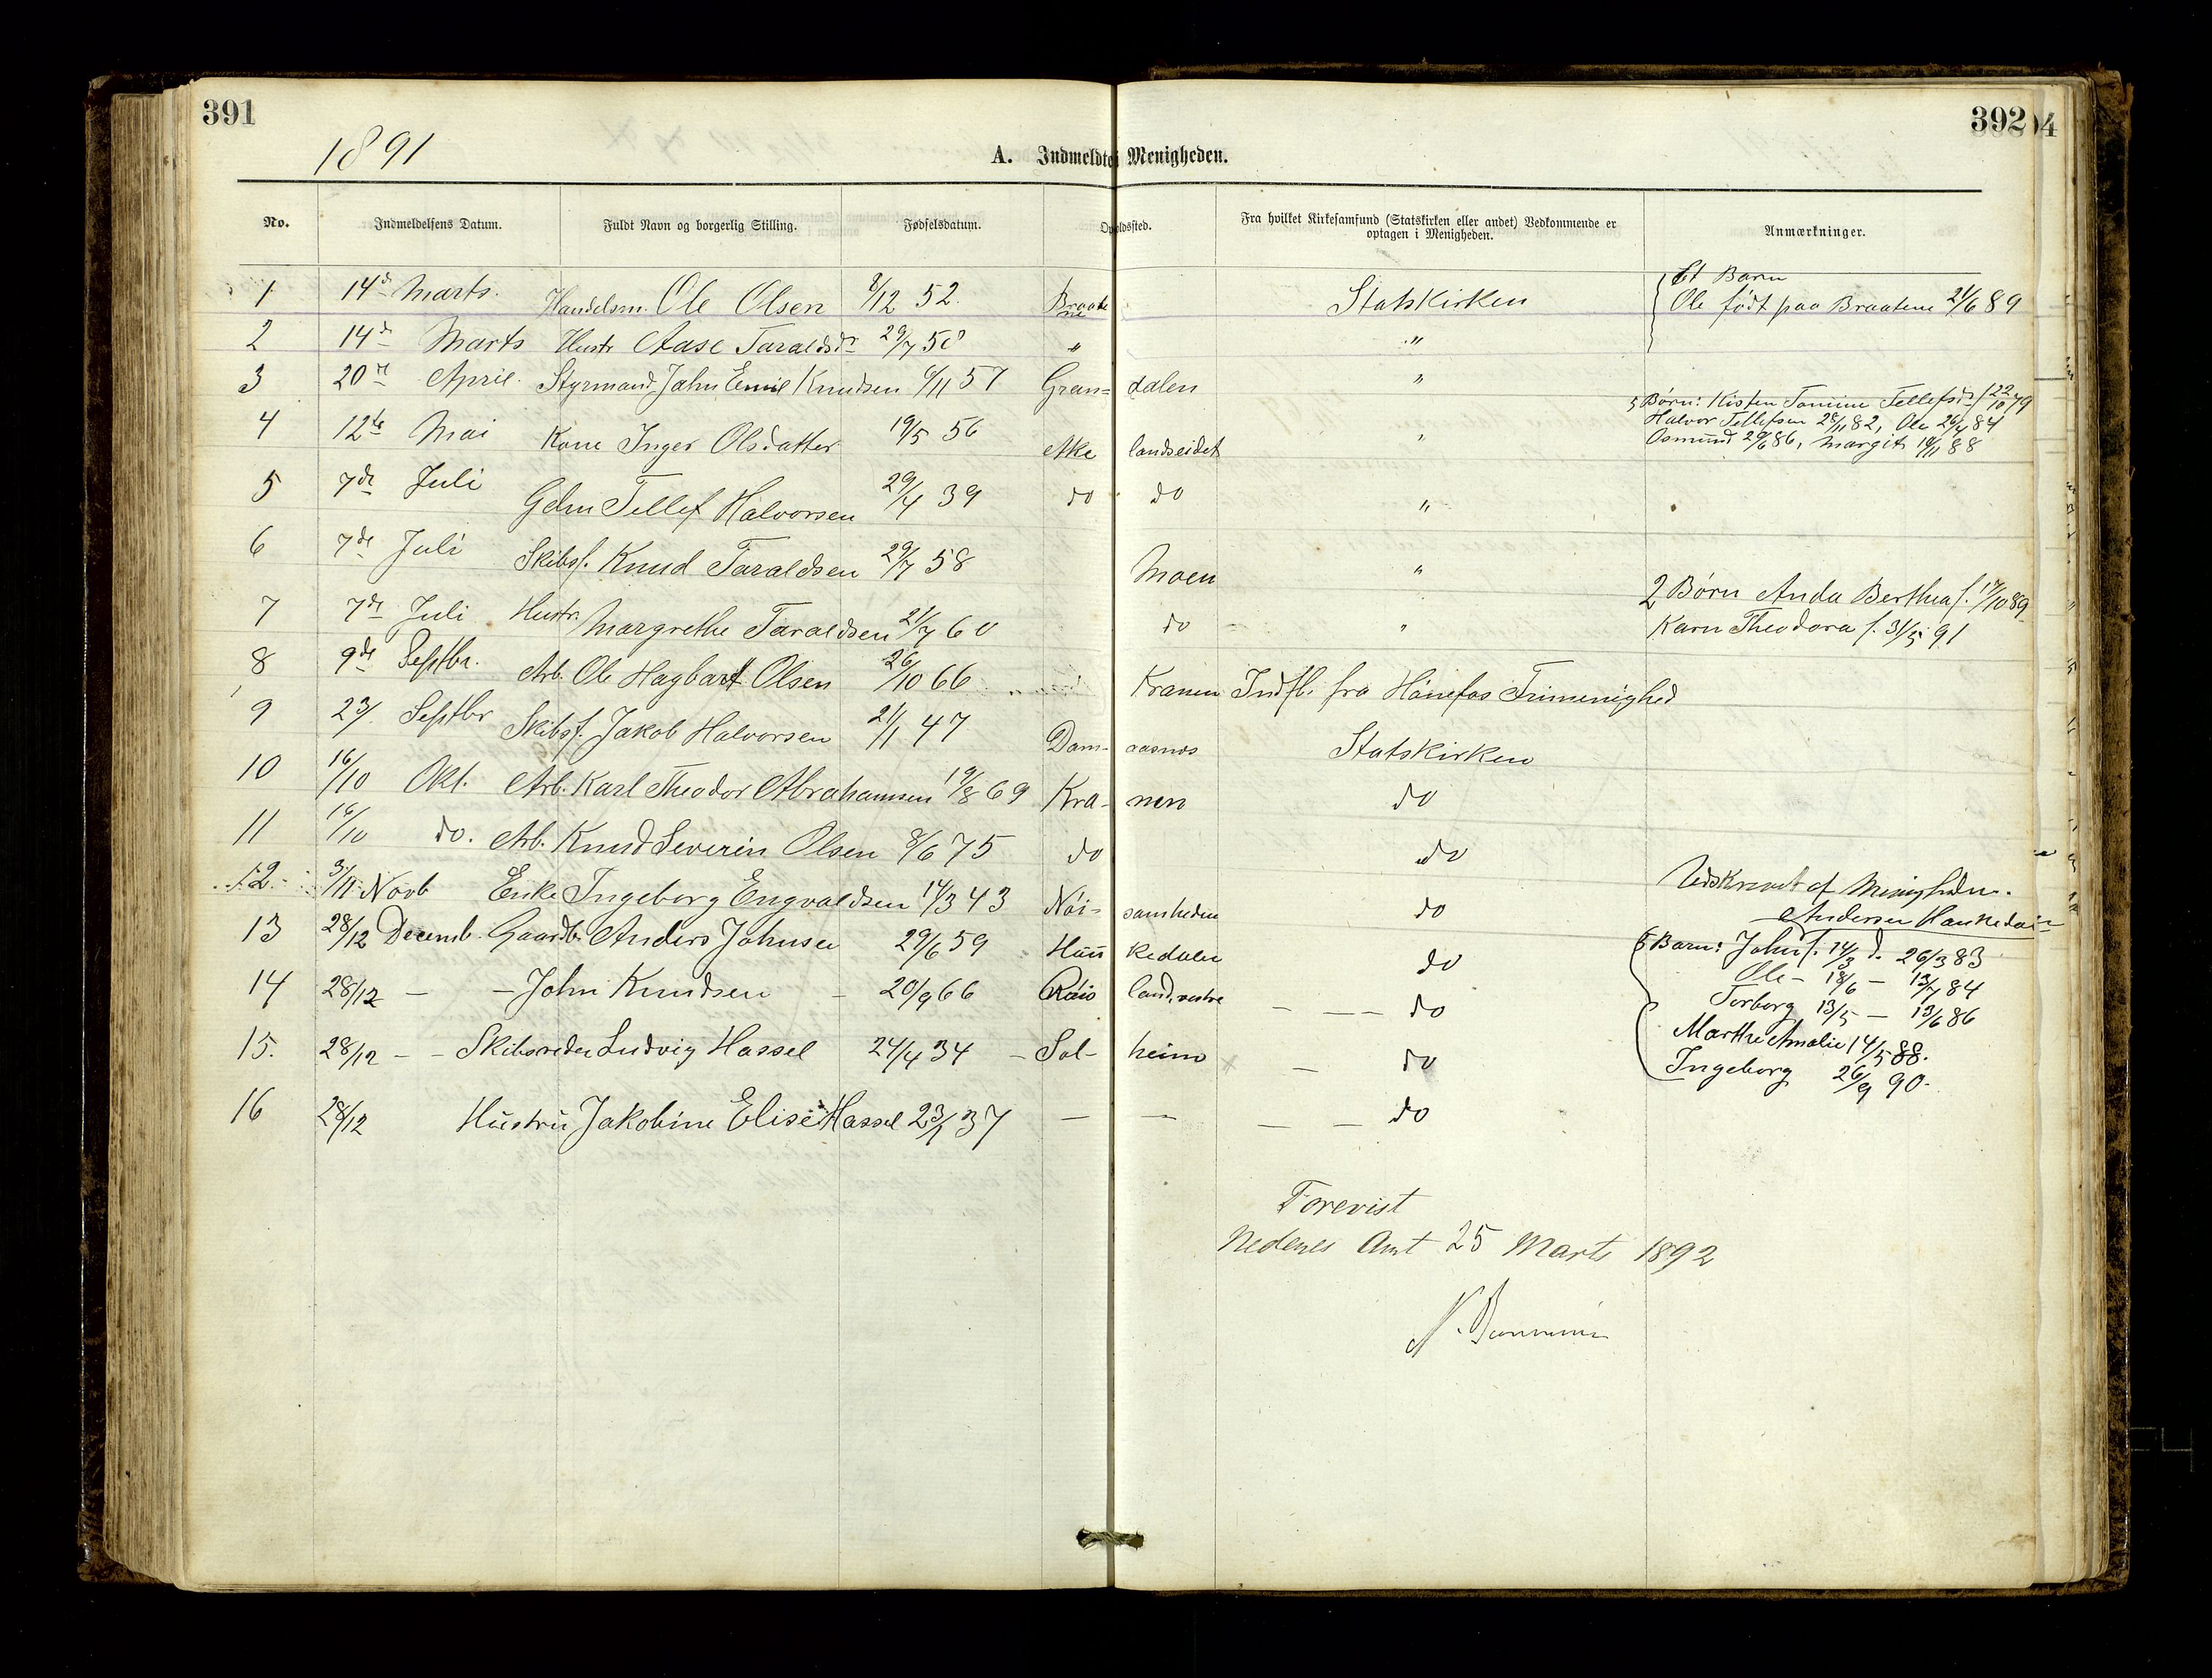 391
392
1891
A. Indmeldte i Menigheden.
No. Indmeldelsens Datum. Fuldt Navn og borgerlig Stilling. Fødselsdatum. Opholdssted. Fra hvilket Kirkesamfund (Statskirken eller andet) Vedkommende er optagen i Menigheden. Anmærkninger.
Et Barn
1 14d Marts. Handelsm. Ole Olsen 8/12 52. Braatene Statskirken Ole født paa Braatene 21/6 89
2 14d Marts Hustr Aase Taraldsdr 29/7 50 " "
3 20de April. Styrmand John Emil Knudsen 6/11 57 Gran= dalen "
5 Børn: Kisten Tomine Tellefsdr f 22/10 79
Halvor Tellefsen 28/11 82, Ole 26/4 84
4 12te Mai Kone Inger Olsdatter 19/5 56 Ake landseidet " Osmund 29/6 86, Margit 10/11 88
5 7de Juli Gdm Tellef Halvorsen 29/4 39 do do "
6 7de Juli Skibsf. Knud Taraldsen 29/7 58 Moen "
2 Børn Anda Berthea f. 17/10 89
7 7de Juli Hustr. Margrethe Taraldsen 21/7 60 do " Karn Theodora f. 31/5 91
8 9de Septbr. Arb. Ole Hagbart Olsen 26/10 66 Kranen Indfl. fra Hönefos Frimenighed
9 23/ Septbr Skibsf. Jakob Halvorsen 21/1 47 Dam- aasnes Statskirken
10 16/10 Okt. Arb. Karl Theodor Abrahamsen 19/8 69 Kra- nen do
11 16/10 do. Arb. Knud Severin Olsen 8/6 75 do do
12 3/11 Novb Enke Ingeborg Engvaldsen 14/3 43 Nöi- somheden do Udskrevet af Menigheden.
Andersen Hankedal
13 28/12 Decemb. Gaardb. Anders Johnsen 29/6 59 Hau kedalen do 5 Barn: John f. 14/3 d. 26/3 83
Ole - 18/6 - 13/7 84
14 28/12 - - John Knudsen - 20/9 66 land, vestre - - - do Torborg 13/5 - 13/6 86
15. 28/12 - - Skibsreder Ludvig Hassel 24/4 34 - Sol- heim - do Marthe Amalie 14/5 88.
Ingeborg 26/9 90.
16 28/12 Hustru Jakobine Elise Hassel 23/1 37 - - - - do
Forevist
Nedenes Amt 25 Marts 1892